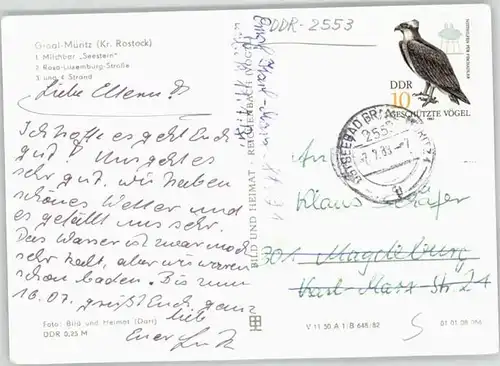 Graal-Müritz (Kr. Rostock)
1 Milchbar "Seestern"
2 Rosa-Luxemburg-Straße
3 und 4 Strand
Liebe Eltern!
Ich hoffe es geht Euch
gut! Uns geht es
sehr gut, wir haben
schönes Wetter und
es gefällt uns sehr.
Das Wasser ist zwar noch
sehr kalt, aber wir waren
schon baden. Bis zum
16.07. grüßt Euch ganz
lieb
Euer
Foto: Bild und Heimat (Darr)
DDR 0,25 M
BILD UND HEIMAT REICHENBACH (VOGTL)
DDR-2553
DDR
10
GESCHÜTZTE VÖGEL
OSTSEEBAD GRAAL-MÜRITZ 1
2553
An
Klaus
301 Magdeburg
Karl-Marx-Str. 21
V 11 50 A 1/B 648/82
01 01 08 056
5